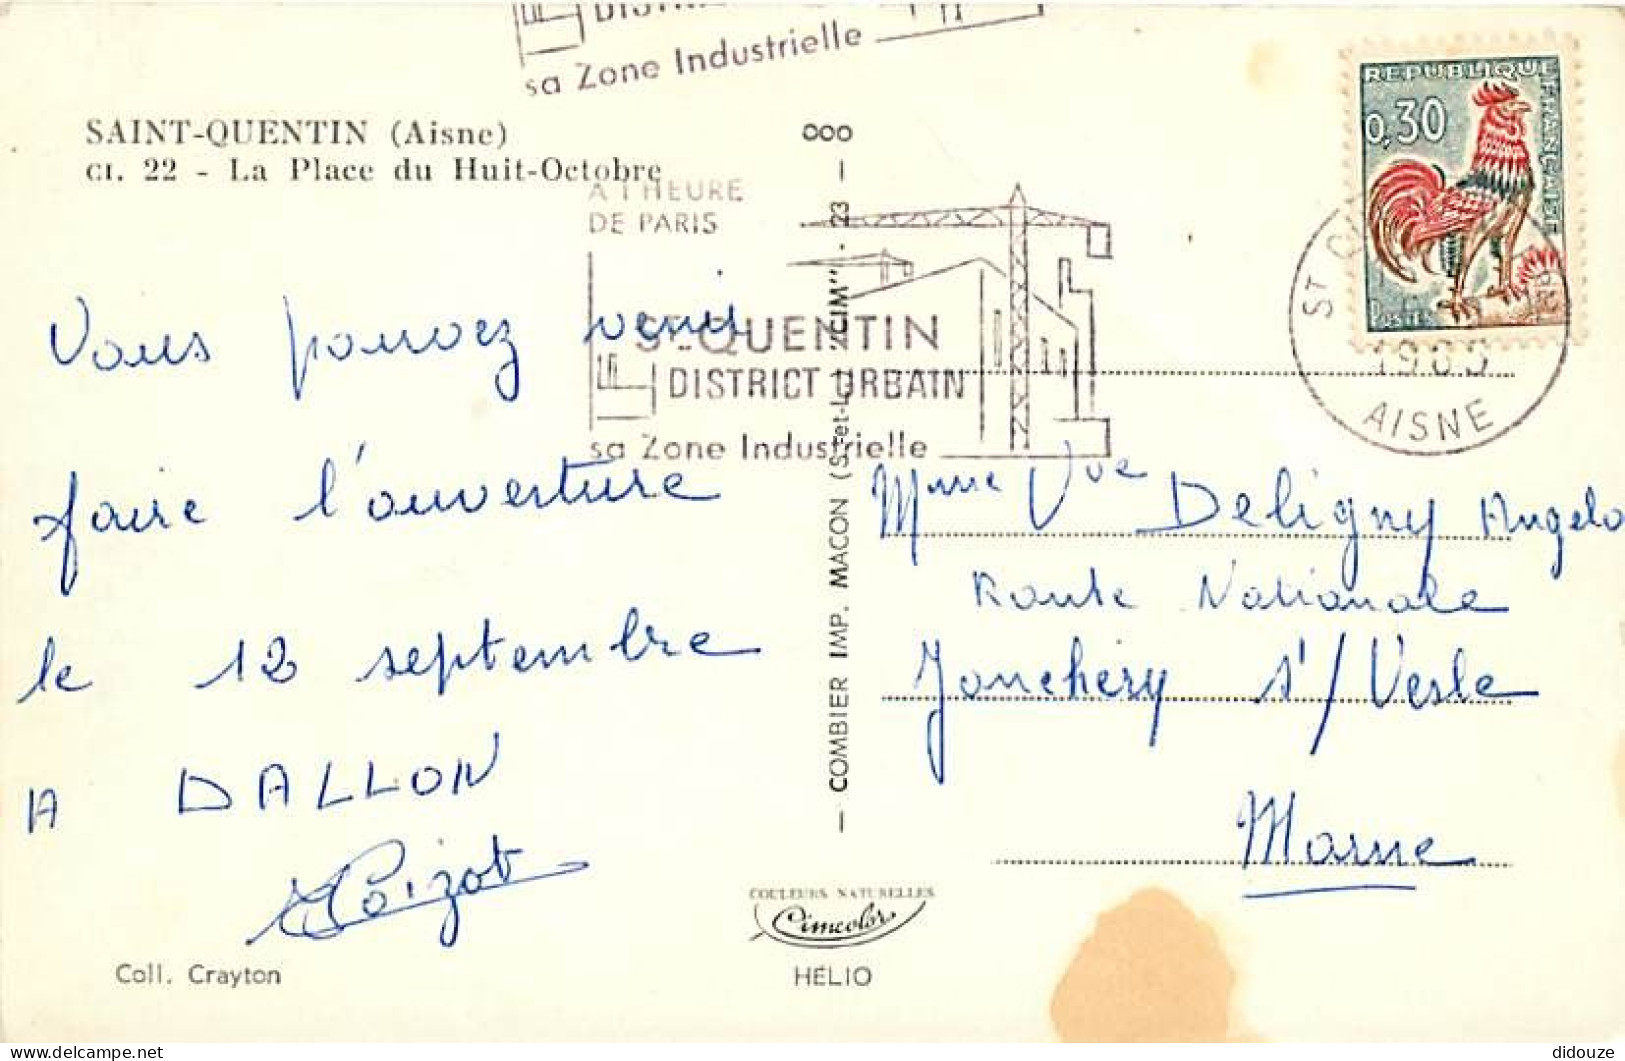 sa Zone Industrielle
SAINT-QUENTIN (Aisne)
CI. 22 - La Place du Huit-Octobre
REPUBLIQUE FRANCAISE
0,30
POSTES
A L'HEURE
DE PARIS
ST-QUENTIN
DISTRICT URBAIN
sa Zone Industrielle
ST
AISNE
Vous pouvez venir
faire l'ouverture
le 12 septembre
A DALLON
Coll. Crayton
COMBIER IMP. MACON (S.-et-L.) "CIM" - 23 -
COULEURS NATURELLES
Cimcolor
HÉLIO
Mme Vve Deligny Angelo
Route Nationale
Jonchery s/ Vesle
Marne
delcampe.net
didouze